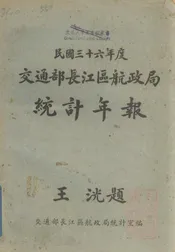 民國三十六年度
交通部長江區航政局
統計年報
王洸題
交通部長江區航政局統計室編